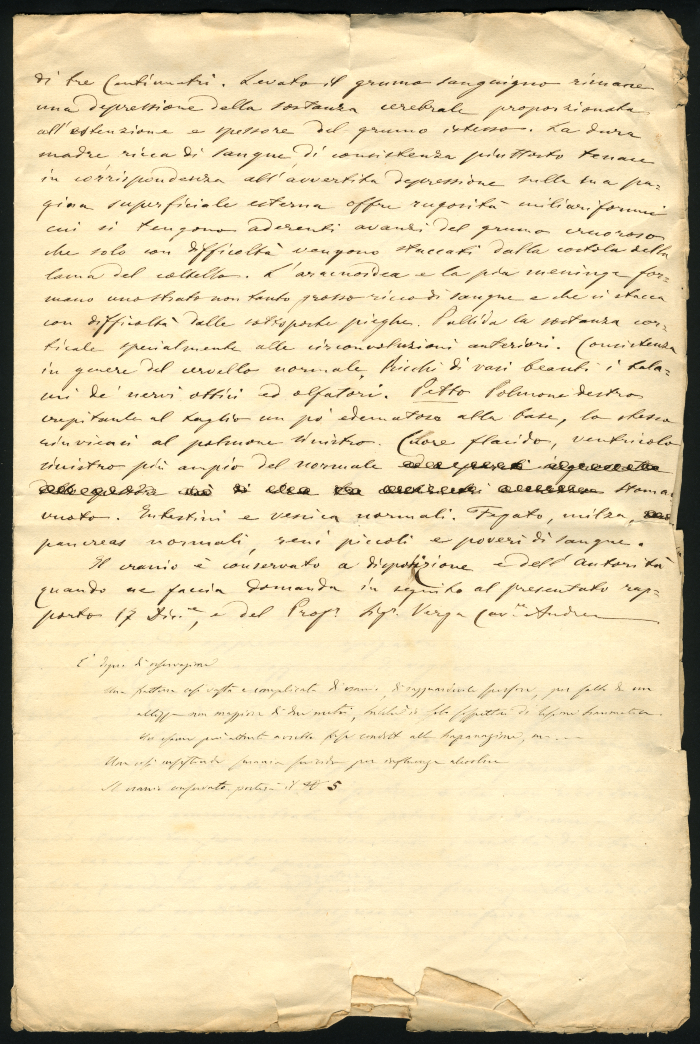 di tre Centimetri. Levato il grumo sanguigno rimane
una depressione della sostanza cerebrale proporzionata
all'estenzione e spessore del grumo istesso. La dura
madre ricca di sangue di consistenza piuttosto tenace
in corrispondenza all'avvertita depressione sulla sua pa-
gina superficiale esterna offre rugosità miliariformi
cui si tengono aderenti avanzi del grumo cruoroso
che solo con difficoltà vengono staccati dalla costola della
lama del coltello. L'aracnoidea e la pia meninge for-
mano uno strato non tanto grosso ricco di sangue e che si stacca
con difficoltà dalle sottoposte pieghe. Pallida la sostanza cor-
ticale specialmente alle circonvoluzioni anteriori. Consistenza
in genere del cervello normale. Ricchi di vasi beanti i tala-
mi de' nervi ottici ed olfatori. Petto Polmone destro
crepitante al taglio un pò edematoso alla base, lo stesso
dicasi al polmone sinistro. Cuore flacido, ventricolo
sinistro più ampio del normale
Stomaco
vuoto. Intestini e vescica normali. Fegato, milza,
pancreas normali, reni piccoli e poveri di sangue.
Il cranio è conservato a disposizione e dell'Autorità
quando ne faccia domanda in seguito al presentato rap-
porto 17 Dic.e, e del Prof. Sig. Verga Cav. Andrea
È degno di osservazione
Una frattura così vasta e complicata di cranio, per fatto da un
altezza non maggiore di due metri,
alla trapanazione, ma
Una così per influenza alcoolica
Il cranio conservato porterà il N 5